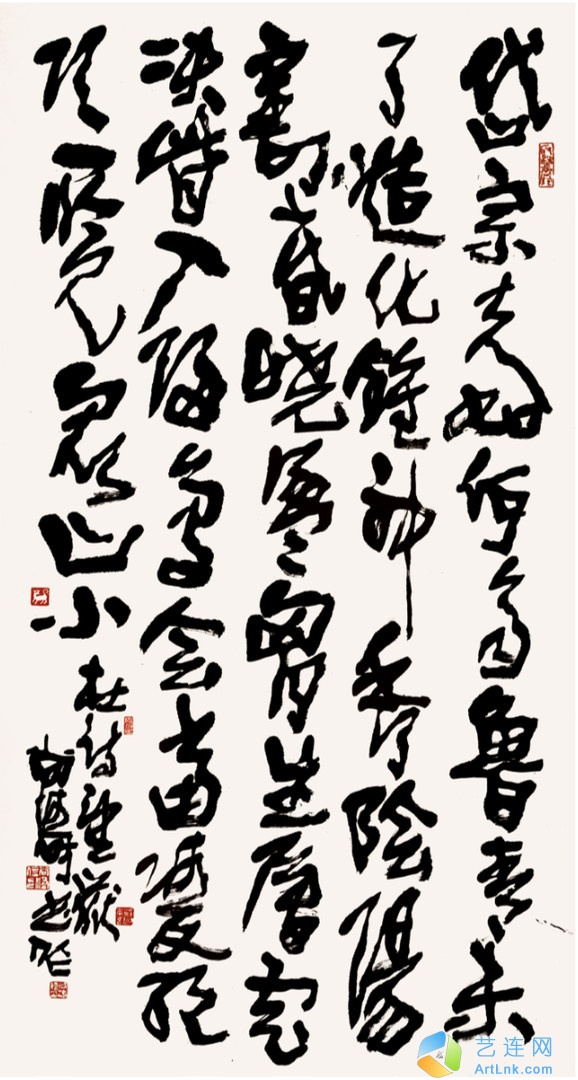 岱宗夫如何齊魯青未
了造化鍾神秀陰陽
割昏曉盪胸生層雲
决眥入歸鳥会當凌絕
頂一覽衆山小
杜詩望嶽
艺连网
ArtLnk.com